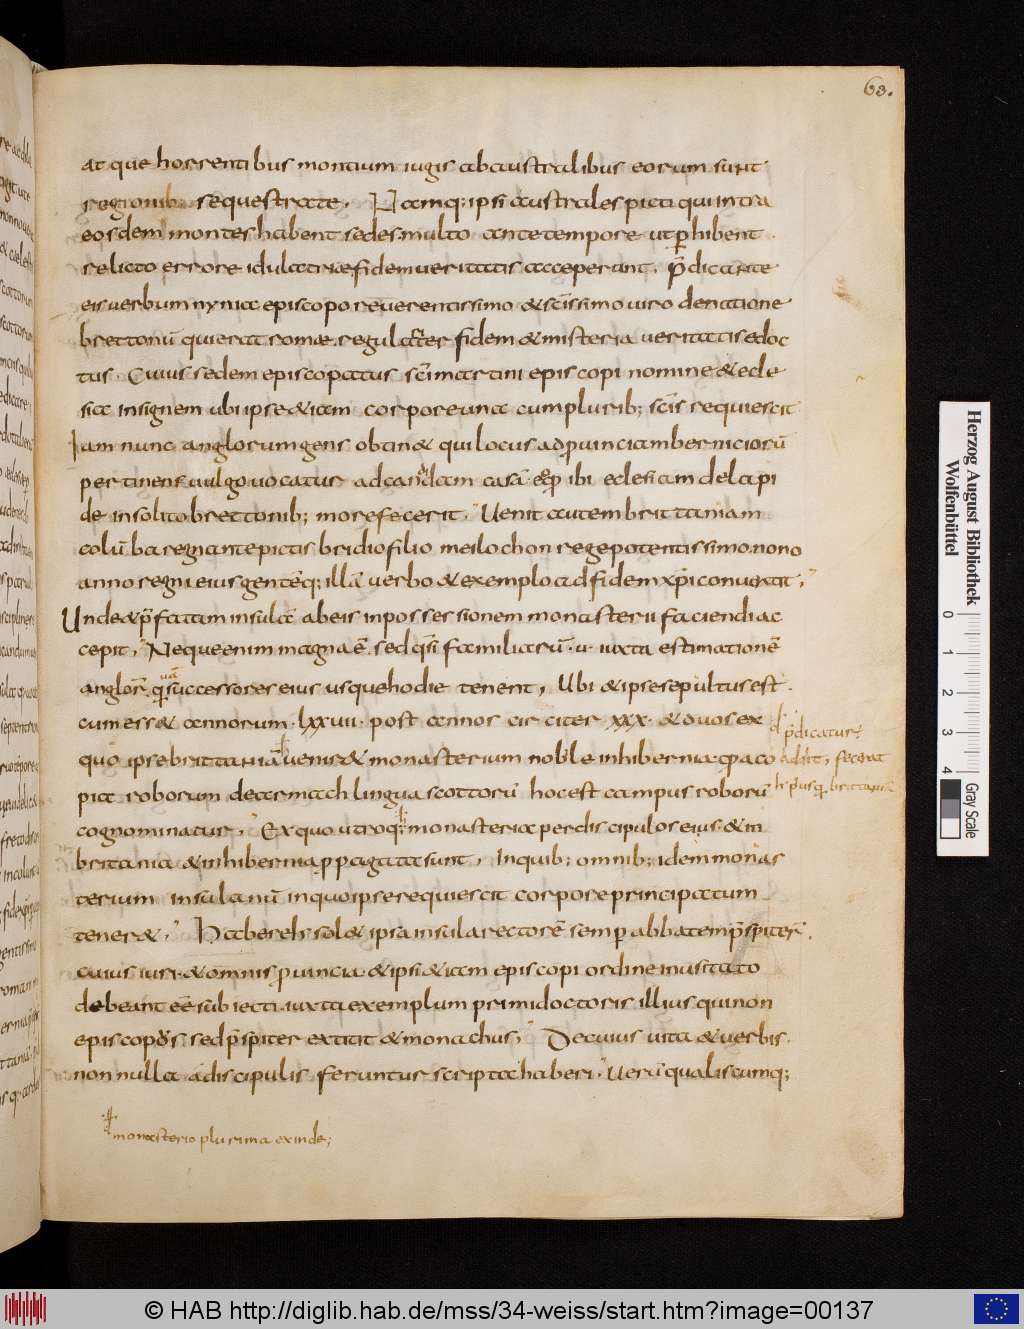 63.
at que horrentibus montium iugis ab australibus eorum sunt
regionib; sequestratae. Namq; ipsi australes picti qui intra
eosdem montes habent sedes multo ante tempore ut p̄hibent
relicto errore idulatriae fidem ueritatis acceperant. p̄dicante
eis uerbum nynia episcopo reuerentissimo & sc̄issimo uiro de natione
brettonū qui erat romae regulariter fidem & misteria ueritatis edoc
tus. Cuius sedem episcopatus sc̄i martini episcopi nomine & ecle
sia insignem ubi ipse & iam corpore una cum plurib; sc̄is requiescit
Iam nunc anglorum gens obtin& qui locus ad puinciam berniciorū
pertinens uulgo uocatur ad candidam casā eo q̄ ibi eclesiam de lapi
de insolito brettonib; more fecerit. Uenit autem brittaniam
colūba regnante pictis bridio filio meilochon rege potentissimo. nono
anno regni eius gentēq; illā uerbo & exemplo ad fidem xp̄i conuertit,
Unde & p̄fatam insulā ab eis in possessionem monasterii faciendi ac
cepit, Neque enim magna ē. sed q̄si familiarū .u. iuxta estimationē
anglor̄ quā successores eius usque hodie tenent, Ubi & ipse sepultus est.
cum ess& annorum .lxxuii. post annos circiter xxx. & duos ex
quo ipse brittaniā uenir& monasterium nobile inhibernia a copa
pia roborum dearmach lingua scottorū hoc est campus roborū
cognominatur, Ex quo utroq; monasteria per discipulos eius & in
britania & inhibernia ppagata sunt, Inquib; omnib; idem monas
terium insulanū inquo ipse requiescit corpore principatum
tener&, Habere sol& ipsa insula rectorē semp abbatem p̄sp̄iterū.
cuius iuri & omnis puincia & ipsi & iam episcopi ordine inusitato
debeant eē subiecti. iuxta exemplum primi doctoris illius qui non
episcopus. sed p̄sp̄iter extitit & monachus, De cuius uita & uerbis.
non nulla a discipulis feruntur scripta haberi. Uerū qualiscumq;
p̄dicatur;
monasterio plurima exinde;
Herzog August Bibliothek
Wolfenbüttel
0 1 2 3 4
Gray Scale
© HAB http://diglib.hab.de/mss/34-weiss/start.htm?image=00137